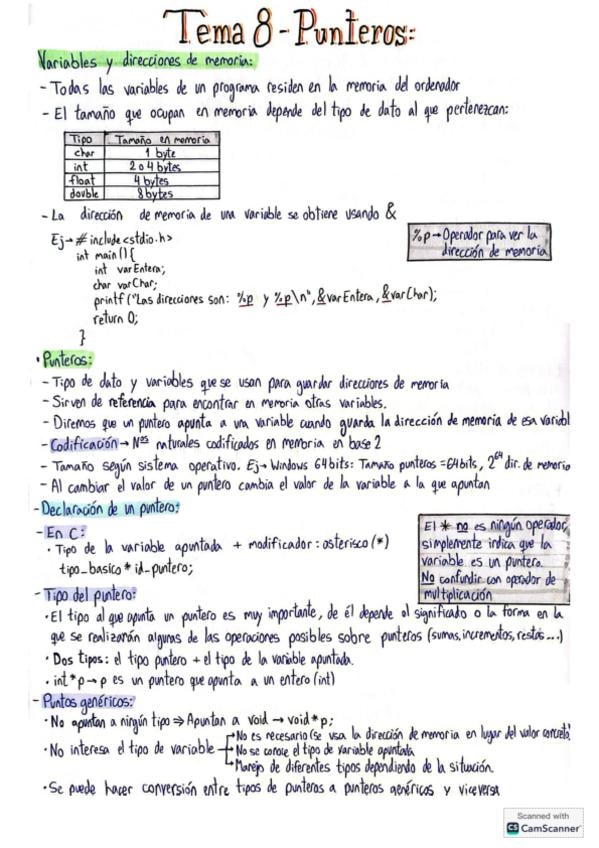 Tema 8 - Punteros:
Variables y direcciones de memoria:
- Todas las variables de un programa residen en la memoria del ordenador
- El tamaño que ocupan en memoria depende del tipo de dato al que pertenezcan:
Tipo Tamaño en memoria
char 1 byte
int 2 o 4 bytes
float 4 bytes
double 8 bytes
- La dirección de memoria de una variable se obtiene usando &
%p → Operador para ver la
dirección de memoria
Ej → #include<stdio.h>
int main(){
int varEntera;
char varChar;
printf ("Las direcciones son: %p y %p\n", &varEntera, &varChar);
return 0;
}
· Punteros:
- Tipo de dato y variables que se usan para guardar direcciones de memoria
- Sirven de referencia para encontrar en memoria otras variables.
- Diremos que un puntero apunta a una variable cuando guarda la dirección de memoria de esa variabl
- Codificación → Nos naturales codificados en memoria en base 2
- Tamaño según sistema operativo. Ej → Windows 64bits: Tamaño punteros = 64bits, 2^64 dir. de memoria
- Al cambiar el valor de un puntero cambia el valor de la variable a la que apuntan
- Declaración de un puntero:
- En C:
· Tipo de la variable apuntada + modificador: asterisco (*)
tipo_basico * id_puntero;
El * no es ningún operador,
simplemente indica que la
variable es un puntero.
No confundir con operador de
multiplicación
- Tipo del puntero:
· El tipo al que apunta un puntero es muy importante, de él depende el significado o la forma en la
que se realizarán algunas de las operaciones posibles sobre punteros (sumas, incrementos, restas...)
· Dos tipos: el tipo puntero + el tipo de la variable apuntada.
· int*p → p es un puntero que apunta a un entero (int)
- Puntos genéricos:
· No apuntan a ningún tipo ⇒ Apuntan a void → void*p;
· No interesa el tipo de variable
→ No es necesario (se usa la dirección de memoria en lugar del valor concreto)
→ No se conoce el tipo de variable apuntada
→ Manejo de diferentes tipos dependiendo de la situación.
· Se puede hacer conversión entre tipos de punteros a punteros genéricos y viceversa
Scanned with
CS CamScanner